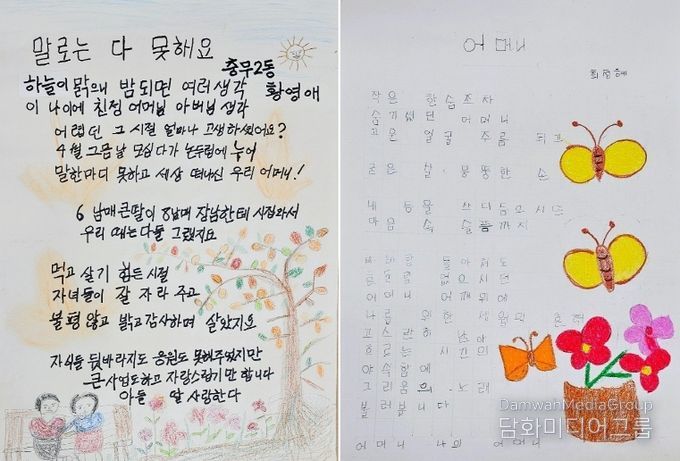 말로는 다 못해요
충무2동
황영애
하늘이 맑으니 밤되면 여러생각
이 나이에 친정 어머님 아버님 생각
어렵던 그 시절 얼마나 고생하셨어요?
4월 그믐날 모심다가 논두렁에 누어
말한마디 못하고 세상 떠나신 우리 어머니!
6 남매 큰딸이 8남매 장남한테 시집와서
우리 때는 다들 그랬지요
먹고 살기 힘든 시절
자녀들이 잘 자라 주고
불평 않고 밝고 감사하며 살았지요
자식들 뒷바라지도 응원도 못해주었지만
큰 사업도하고 자랑스럽기만 합니다
아들 딸 사랑한다
어머니
작은 한숨조차
숨기셨던 어머니
고운 얼굴 주름 되고
굳은 살 뭉뚱한 손
내 등을 쓰다듬으시던
마음 속 슬픔까지
돌아서도
없으시던
어머니 어깨위에
나를 위한 세월의 흔적
고스란히 남아
흐르는 시간의
야속함에
그리움의 노래
불러봅니다
어머니 나의 어머니
DamwhaMediaGroup
담화미디어그룹